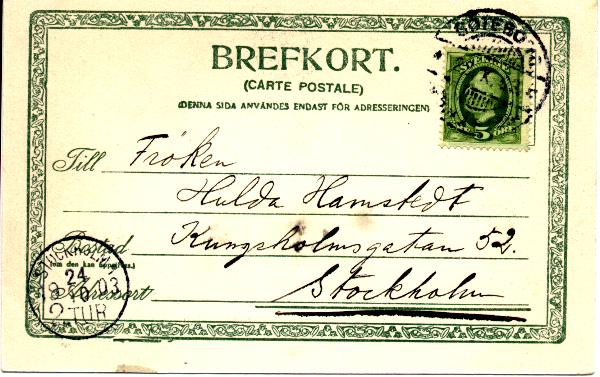 BREFKORT.
(CARTE POSTALE)
(DENNA SIDA ANVÄNDES ENDAST FÖR ADRESSERINGEN)
GÖTEBO
5
Till Fröken
Hulda Hamstedt
Bostad Kungsholmsgatan 52.
(om den kan uppgifvas.)
Adressort Stockholm
STOCKHOLM
24
03
2 TUR